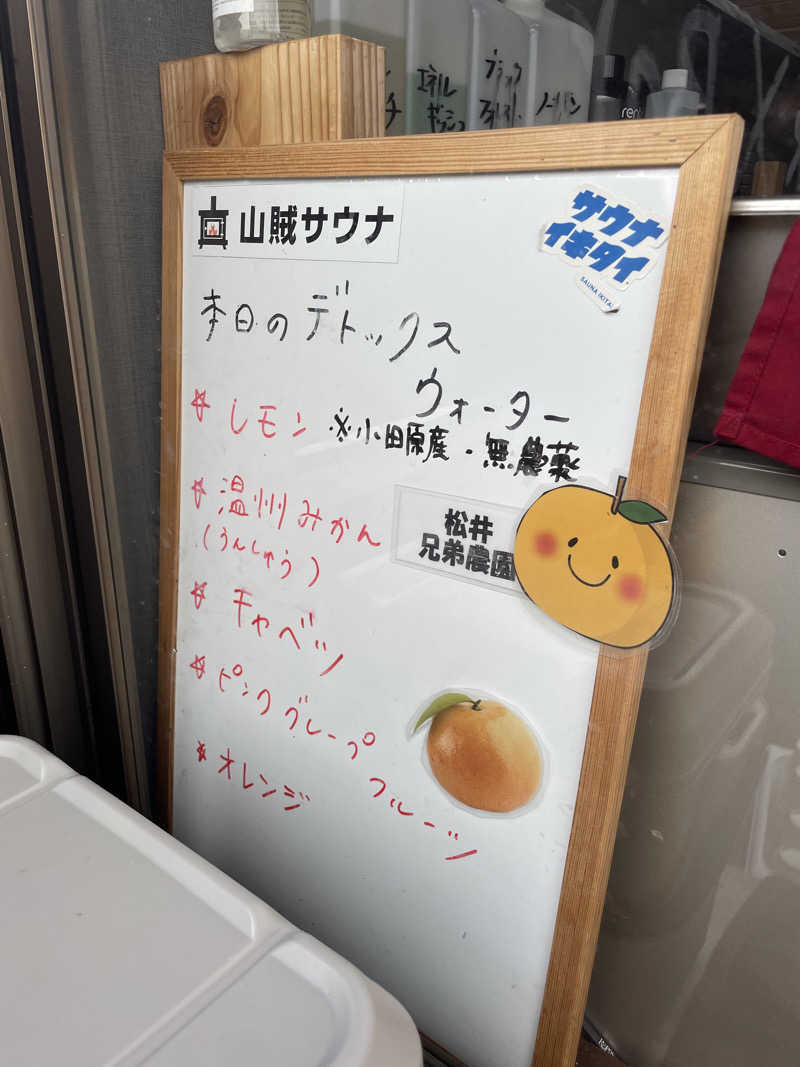 エネル
ギッシュ
ブラック
フォレスト
ノーパン
山賊サウナ
サウナ
イキタイ
SAUNA IKITAI
本日のデトックス
ウォーター
☆レモン ※小田原産・無農薬
☆温州みかん
(うんしゅう)
松井
兄弟農園
☆キャベツ
☆ピンクグレープ
フルーツ
☆オレンジ